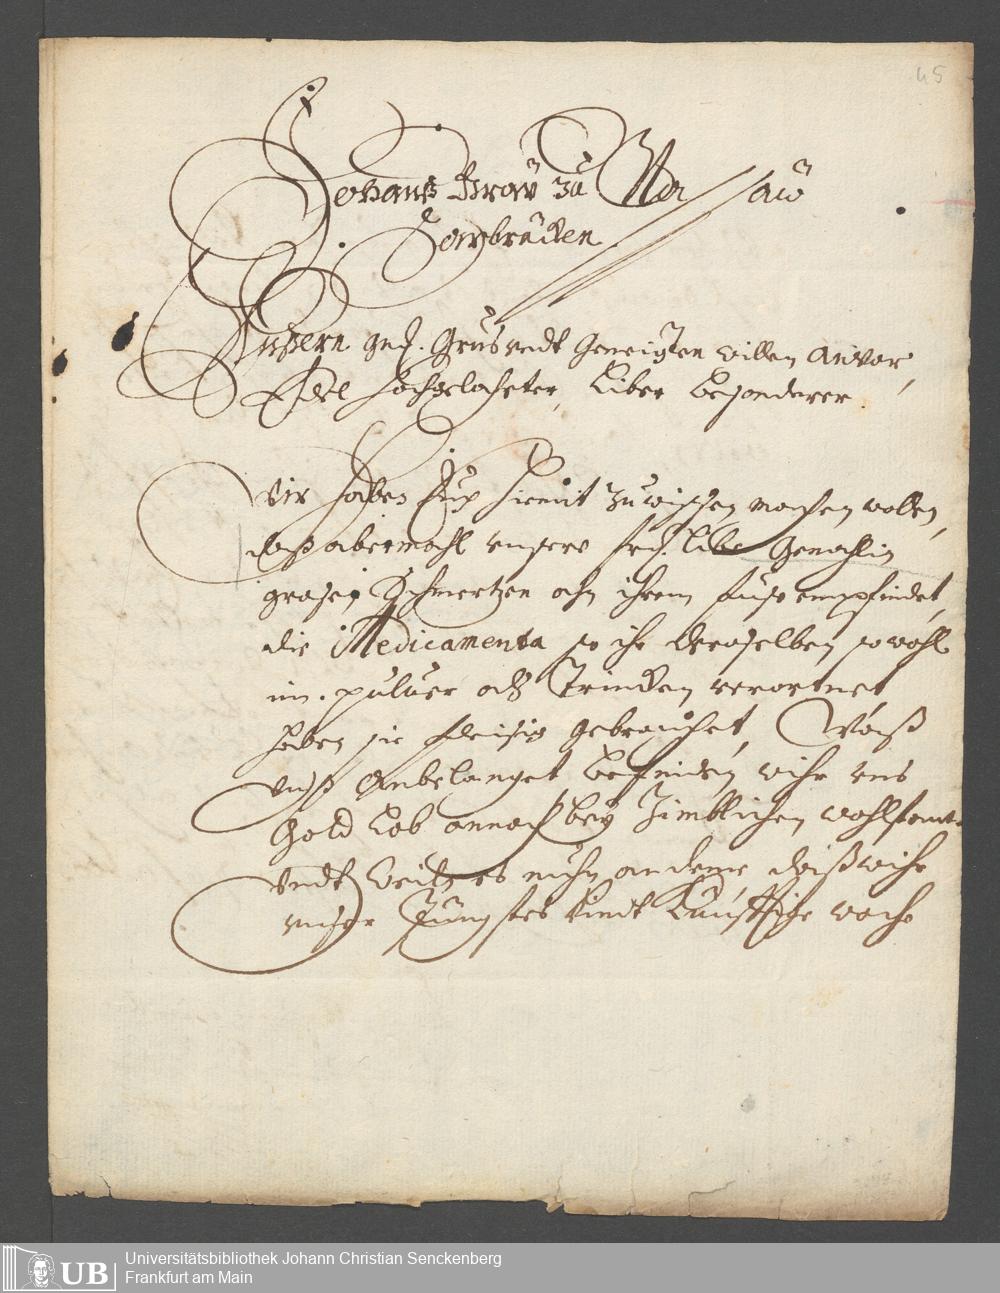 45
Johanß Graw zu Nassaw
Sarbrücken
Unßern gnd. Grus undt Geneigten willen Anvor,
Edel Hochgelahrter, Liber Besonderer
Wir haben Eüch hiemit zu wissen machen wollen,
daß abermahl unsere frd. libe Gemahlin
grosen Schmertzen ahn ihrem fuße empfindet,
die Medicamenta so ihr deroselben sowohl
im pulver alß Trincken verortnet
haben sie fleisig gebrauchet, Waß
unß Anbelanget befinden wihr uns
Gott Lob annoch bey Zimblichen wohlstant
Undt Weiln es nuhn andeme, daß wihr
unser Jüngstes kindt künfftige woche
Universitätsbibliothek Johann Christian Senckenberg
Frankfurt am Main
UB